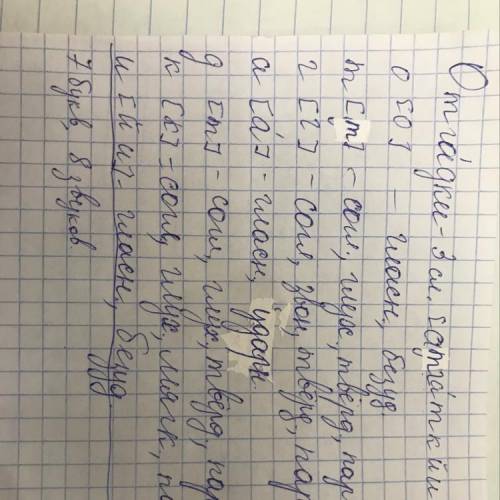 Отгадки - 3 сл. [атга́ткйи
о [о] - гласн, безуд
т [т] - согл, глух, твёрд, пар
г [г] - согл, звон, тверд, пар
а [а́] - гласн, ударн.
д [т] - согл, глух, твёрд, пар
к [к] - согл, глух, мягк, па
и [й и] - гласн, безуд.
7 букв, 8 звуков.